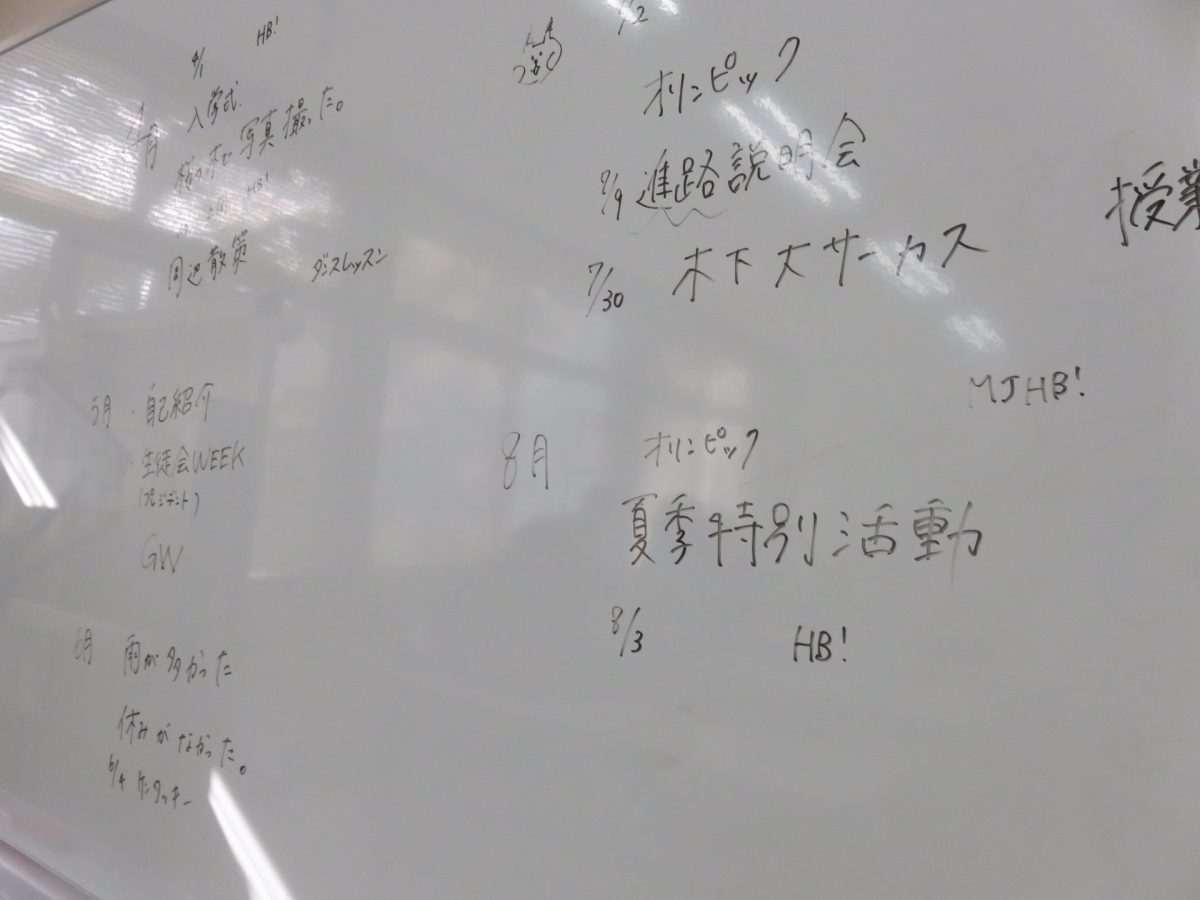 4/1 HB!
4月 入学式.
桜の木で写真撮った。
HB!
周辺散策 ダンスレッスン
5月 ・自己紹介
・生徒会WEEK
(プレジデント)
GW
6月 雨が多かった
休みがなかった。
6/4 ケンタッキー
オリンピック
進路説明会
7/30 木下大サーカス
MJHB!
8月 オリンピック
夏季特別活動
8/3 HB!
授業